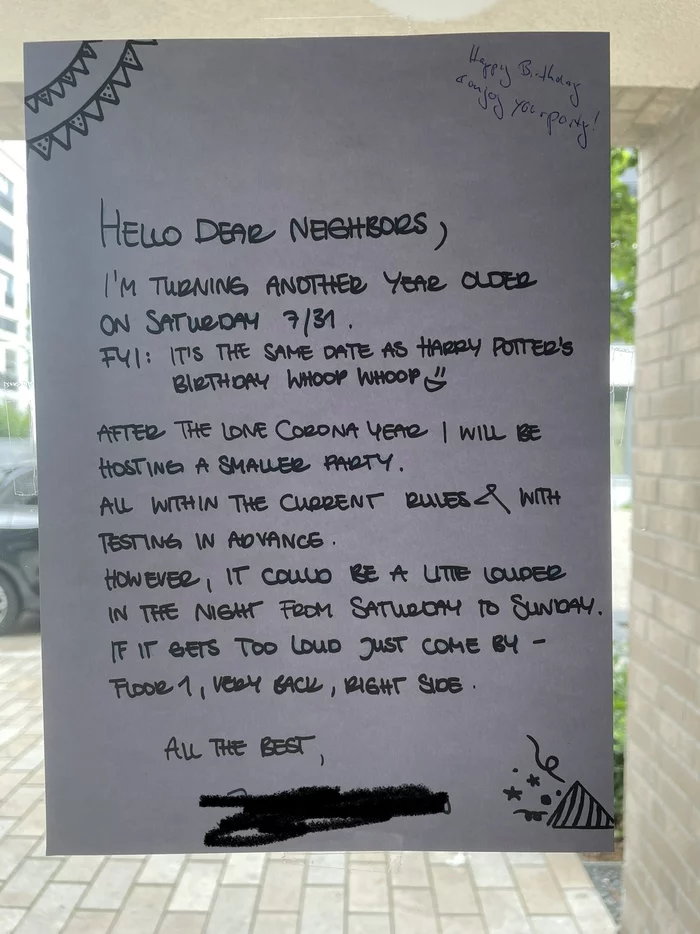 Happy Birthday
& enjoy your party!
HELLO DEAR NEIGHBORS,
I'M TURNING ANOTHER YEAR OLDER
ON SATURDAY 7/31.
FYI: IT'S THE SAME DATE AS HARRY POTTER'S
BIRTHDAY WHOOP WHOOP
AFTER THE LONE CORONA YEAR I WILL BE
HOSTING A SMALLER PARTY.
ALL WITHIN THE CURRENT RULES & WITH
TESTING IN ADVANCE.
HOWEVER, IT COULD BE A LITTLE LOUDER
IN THE NIGHT FROM SATURDAY TO SUNDAY.
IF IT GETS TOO LOUD JUST COME BY -
FLOOR 1, VERY BACK, RIGHT SIDE.
ALL THE BEST,